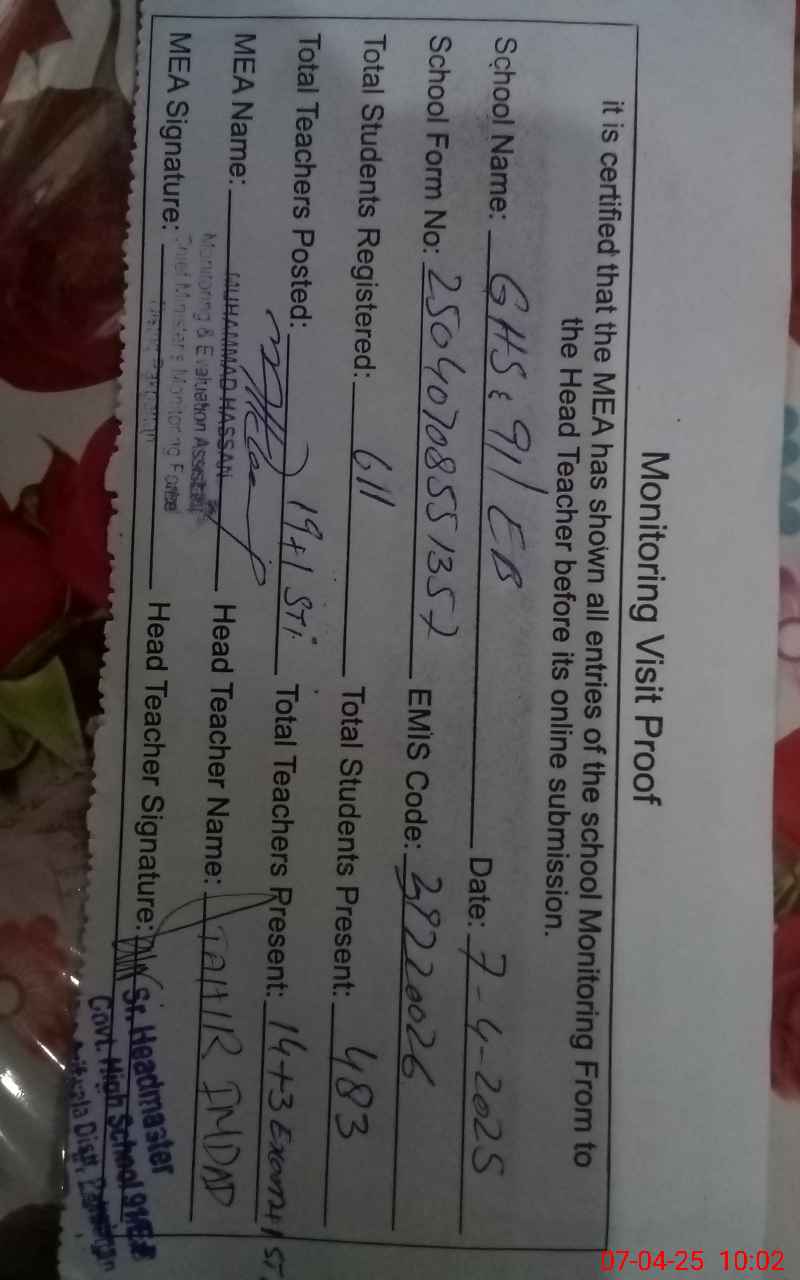 Monitoring Visit Proof
it is certified that the MEA has shown all entries of the school Monitoring From to
the Head Teacher before its online submission.
School Name: GHS 91/EB Date: 7-4-2025
School Form No: 25040708551357 EMIS Code: 39220026
Total Students Registered: 611 Total Students Present: 483
Total Teachers Posted: 19+1 STI Total Teachers Present: 14+3 Exam+1 ST
MEA Name: MUHAMMAD HASSAN Head Teacher Name: TAHIR IMDAD
Monitoring & Evaluation Assistant
MEA Signature: Head Teacher Signature:
Chief Minister's Monitoring Force
Sr. Headmaster
Govt. High School 91/EB
Distt. Pakpattan
07-04-25 10:02